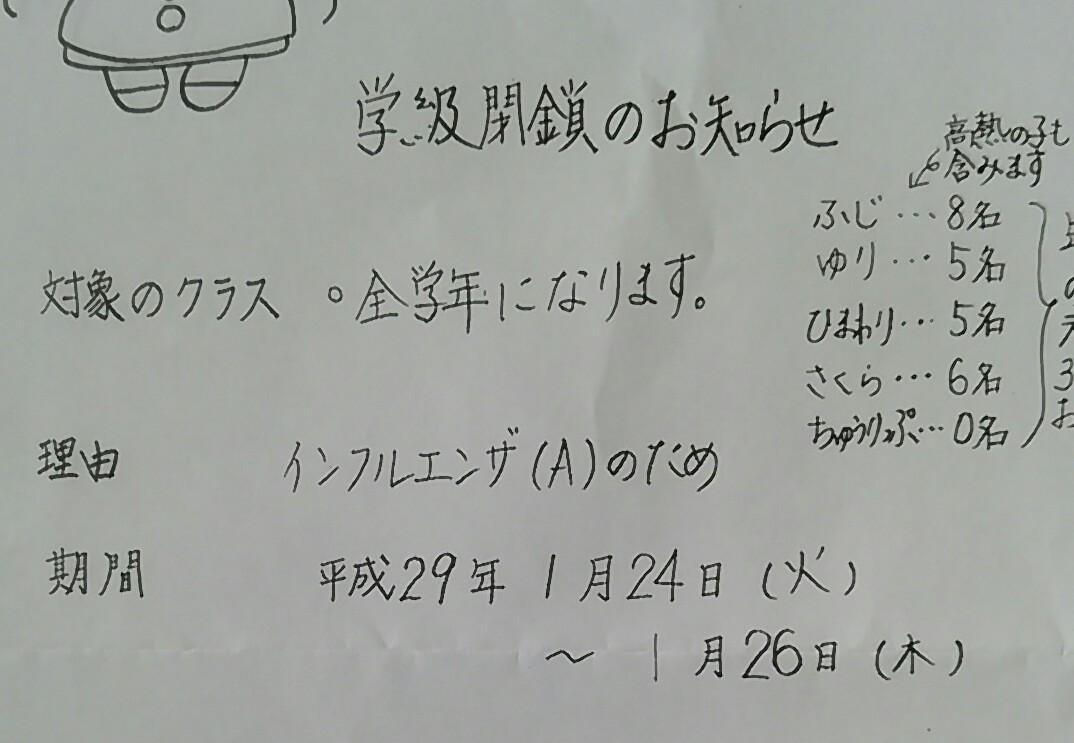 学級閉鎖のお知らせ
高熱の子も
含みます
ふじ…8名
ゆり…5名
ひまわり…5名
さくら…6名
ちゅうりっぷ…0名
対象のクラス 。全学年になります。
理由 インフルエンザ(A)のため
期間 平成29年 1月24日(火)
～ 1月26日(木)